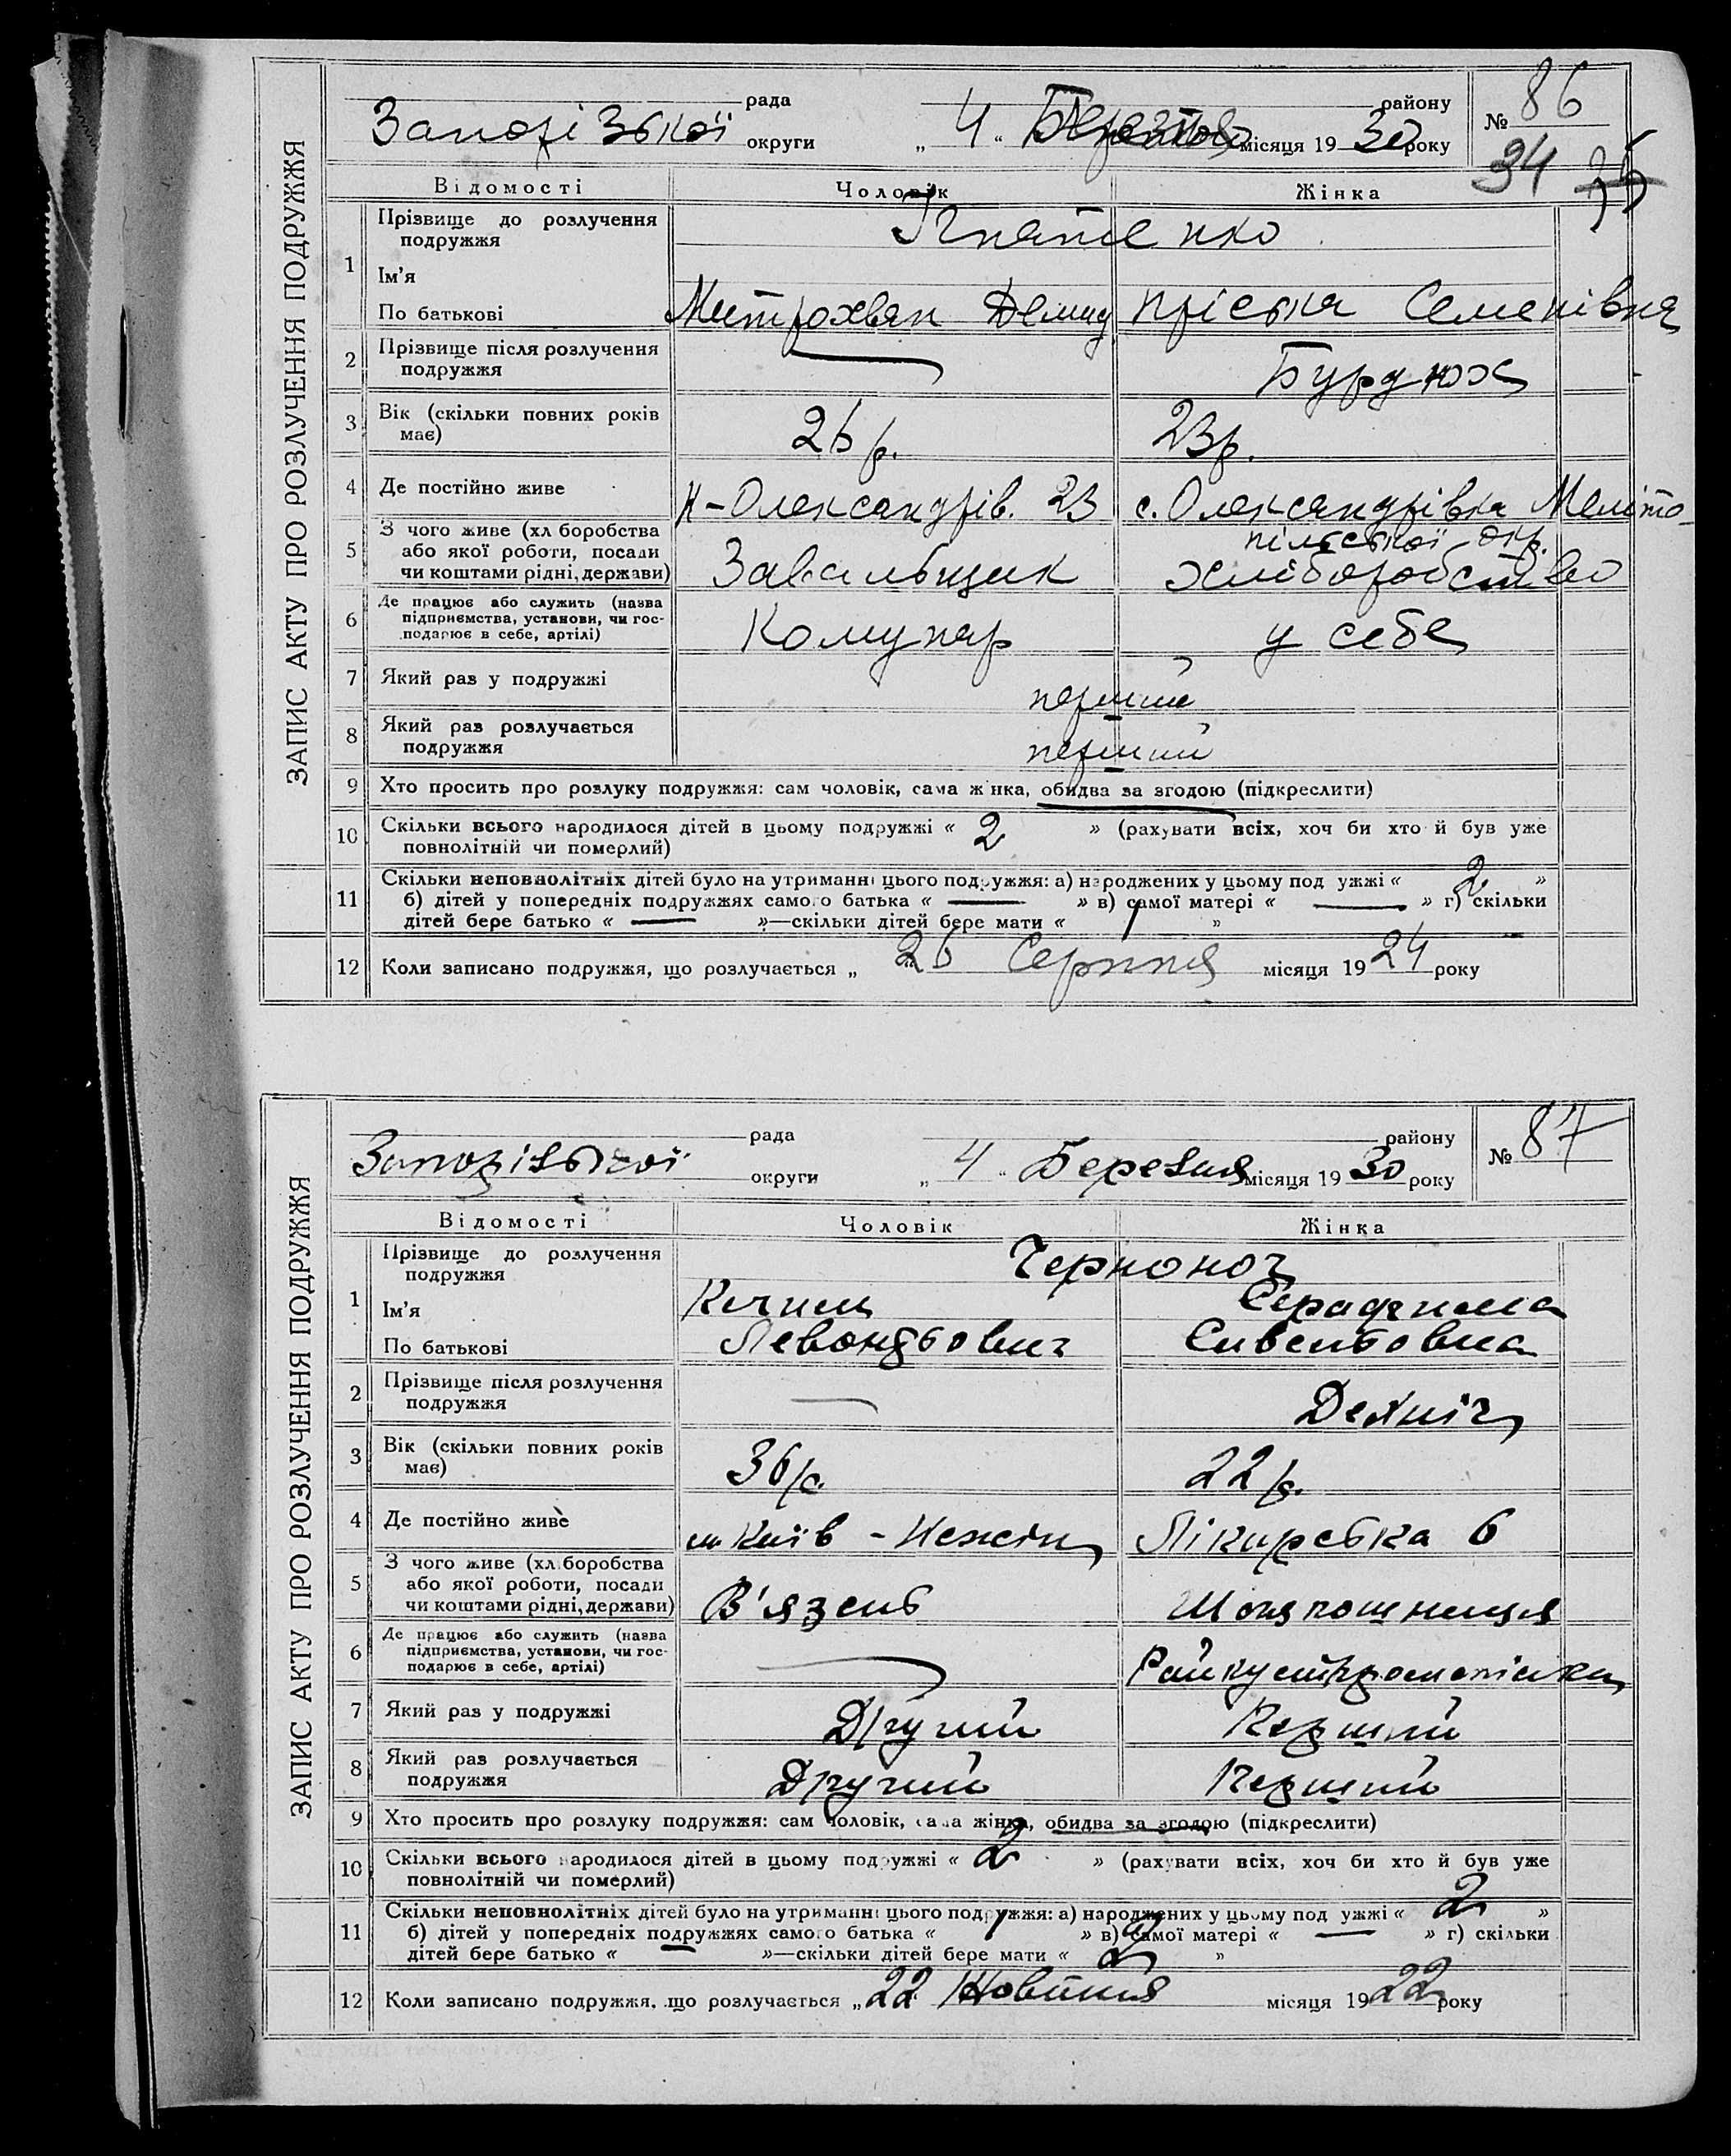 ЗАПИС АКТУ ПРО РОЗЛУЧЕННЯ ПОДРУЖЖЯ
рада району № 86
Запорізької округи „ 4 “ Березня місяця 1930 року
94 35
Відомості Чоловік Жінка
1 Прізвище до розлучення подружжя
Ігнатенко
Ім'я
По батькові Митрохван Демид Пріська Семенівна
2 Прізвище після розлучення подружжя — Бурдюх
3 Вік (скільки повних років має) 26 р. 23 р.
4 Де постійно живе Н-Олександрів. 23 с. Олександрівка Меліто-
пільської окр.
5 З чого живе (хліборобства
або якої роботи, посади
чи коштами рідні, держави) Завальщик хліборобство
6 Де працює або служить (назва
підприємства, установи, чи гос-
подарює в себе, артілі) Комунар у себе
7 Який раз у подружжі перший
8 Який раз розлучається
подружжя перший
9 Хто просить про розлуку подружжя: сам чоловік, сама жінка, обидва за згодою (підкреслити)
10 Скільки всього народилося дітей в цьому подружжі « 2 » (рахувати всіх, хоч би хто й був уже
повнолітній чи померлий)
11 Скільки неповнолітніх дітей було на утриманні цього подружжя: а) народжених у цьому подружжі « 2 »
б) дітей у попередніх подружжях самого батька « — » в) самої матері « — » г) скільки
дітей бере батько « — »—скільки дітей бере мати « 1 »
12 Коли записано подружжя, що розлучається „ 26 Серпня місяця 1924 року
ЗАПИС АКТУ ПРО РОЗЛУЧЕННЯ ПОДРУЖЖЯ
рада району № 87
Запорізької округи „ 4 “ Березня місяця 1930 року
Відомості Чоловік Жінка
1 Прізвище до розлучення
подружжя Черноног
Ім'я Серафима
По батькові Левондьович
2 Прізвище після розлучення
подружжя —
3 Вік (скільки повних років
має) 36 р. 22 р.
4 Де постійно живе м Київ - Лікарська 6
5 З чого живе (хліборобства
або якої роботи, посади
чи коштами рідні, держави) В'язень
6 Де працює або служить (назва
підприємства, установи, чи гос-
подарює в себе, артілі) —
7 Який раз у подружжі Другий Перший
8 Який раз розлучається
подружжя Другий Перший
9 Хто просить про розлуку подружжя: сам чоловік, сама жінка, обидва за згодою (підкреслити)
10 Скільки всього народилося дітей в цьому подружжі « 2 » (рахувати всіх, хоч би хто й був уже
повнолітній чи померлий)
11 Скільки неповнолітніх дітей було на утриманні цього подружжя: а) народжених у цьому подружжі « 2 »
б) дітей у попередніх подружжях самого батька « 1 » в) самої матері « — » г) скільки
дітей бере батько « — »—скільки дітей бере мати « 2 »
12 Коли записано подружжя, що розлучається „ 22 Жовтня місяця 1922 року